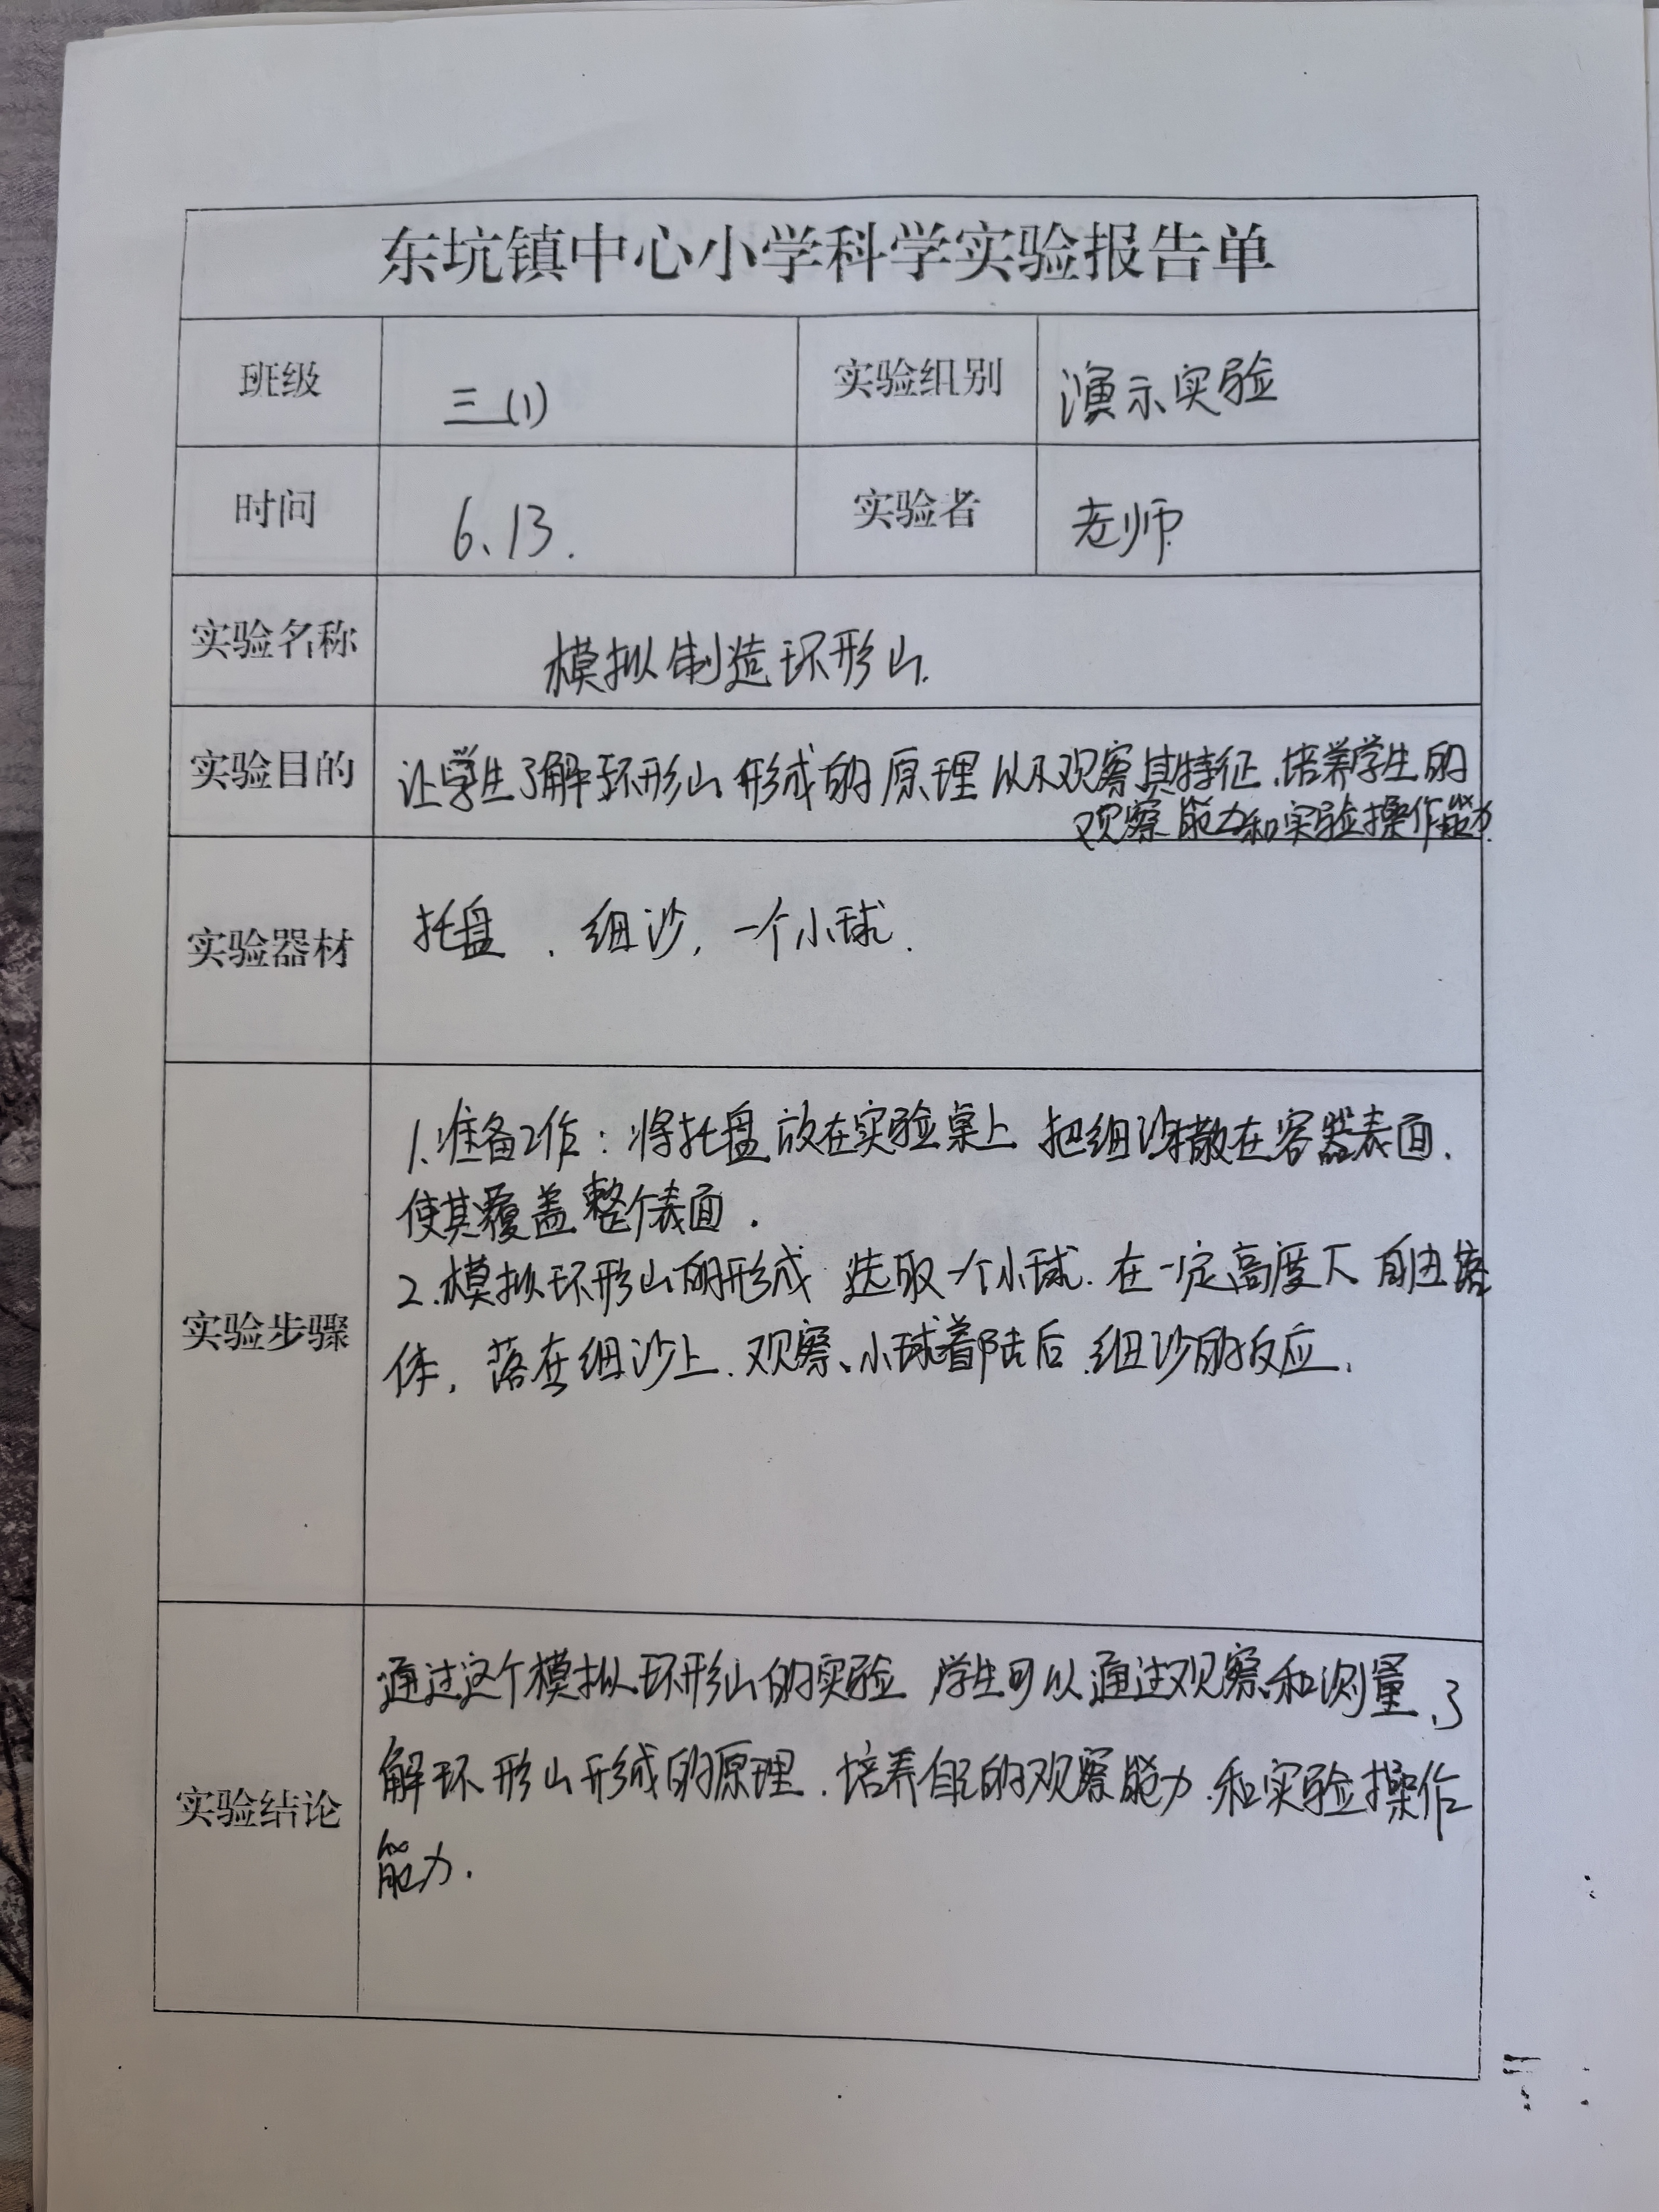 东坑镇中心小学科学实验报告单
班级 三(1) 实验组别 演示实验
时间 6、13. 实验者 老师
实验名称 模拟制造环形山.
实验目的 让学生了解环形山形成的原理以及观察其特征.培养学生的
观察能力和实验操作能力.
实验器材 托盘、细沙,一个小球.
实验步骤
1.准备工作:将托盘放在实验桌上 把细沙撒在容器表面.
使其覆盖整个表面.
2.模拟环形山的形成 选取一个小球.在一定高度下 自由落
体,落在细沙上.观察、小球着陆后.细沙的反应.
实验结论
通过这个模拟环形山的实验 学生可以通过观察和测量、了
解环形山形成的原理.培养自己的观察能力.和实验操作
能力.